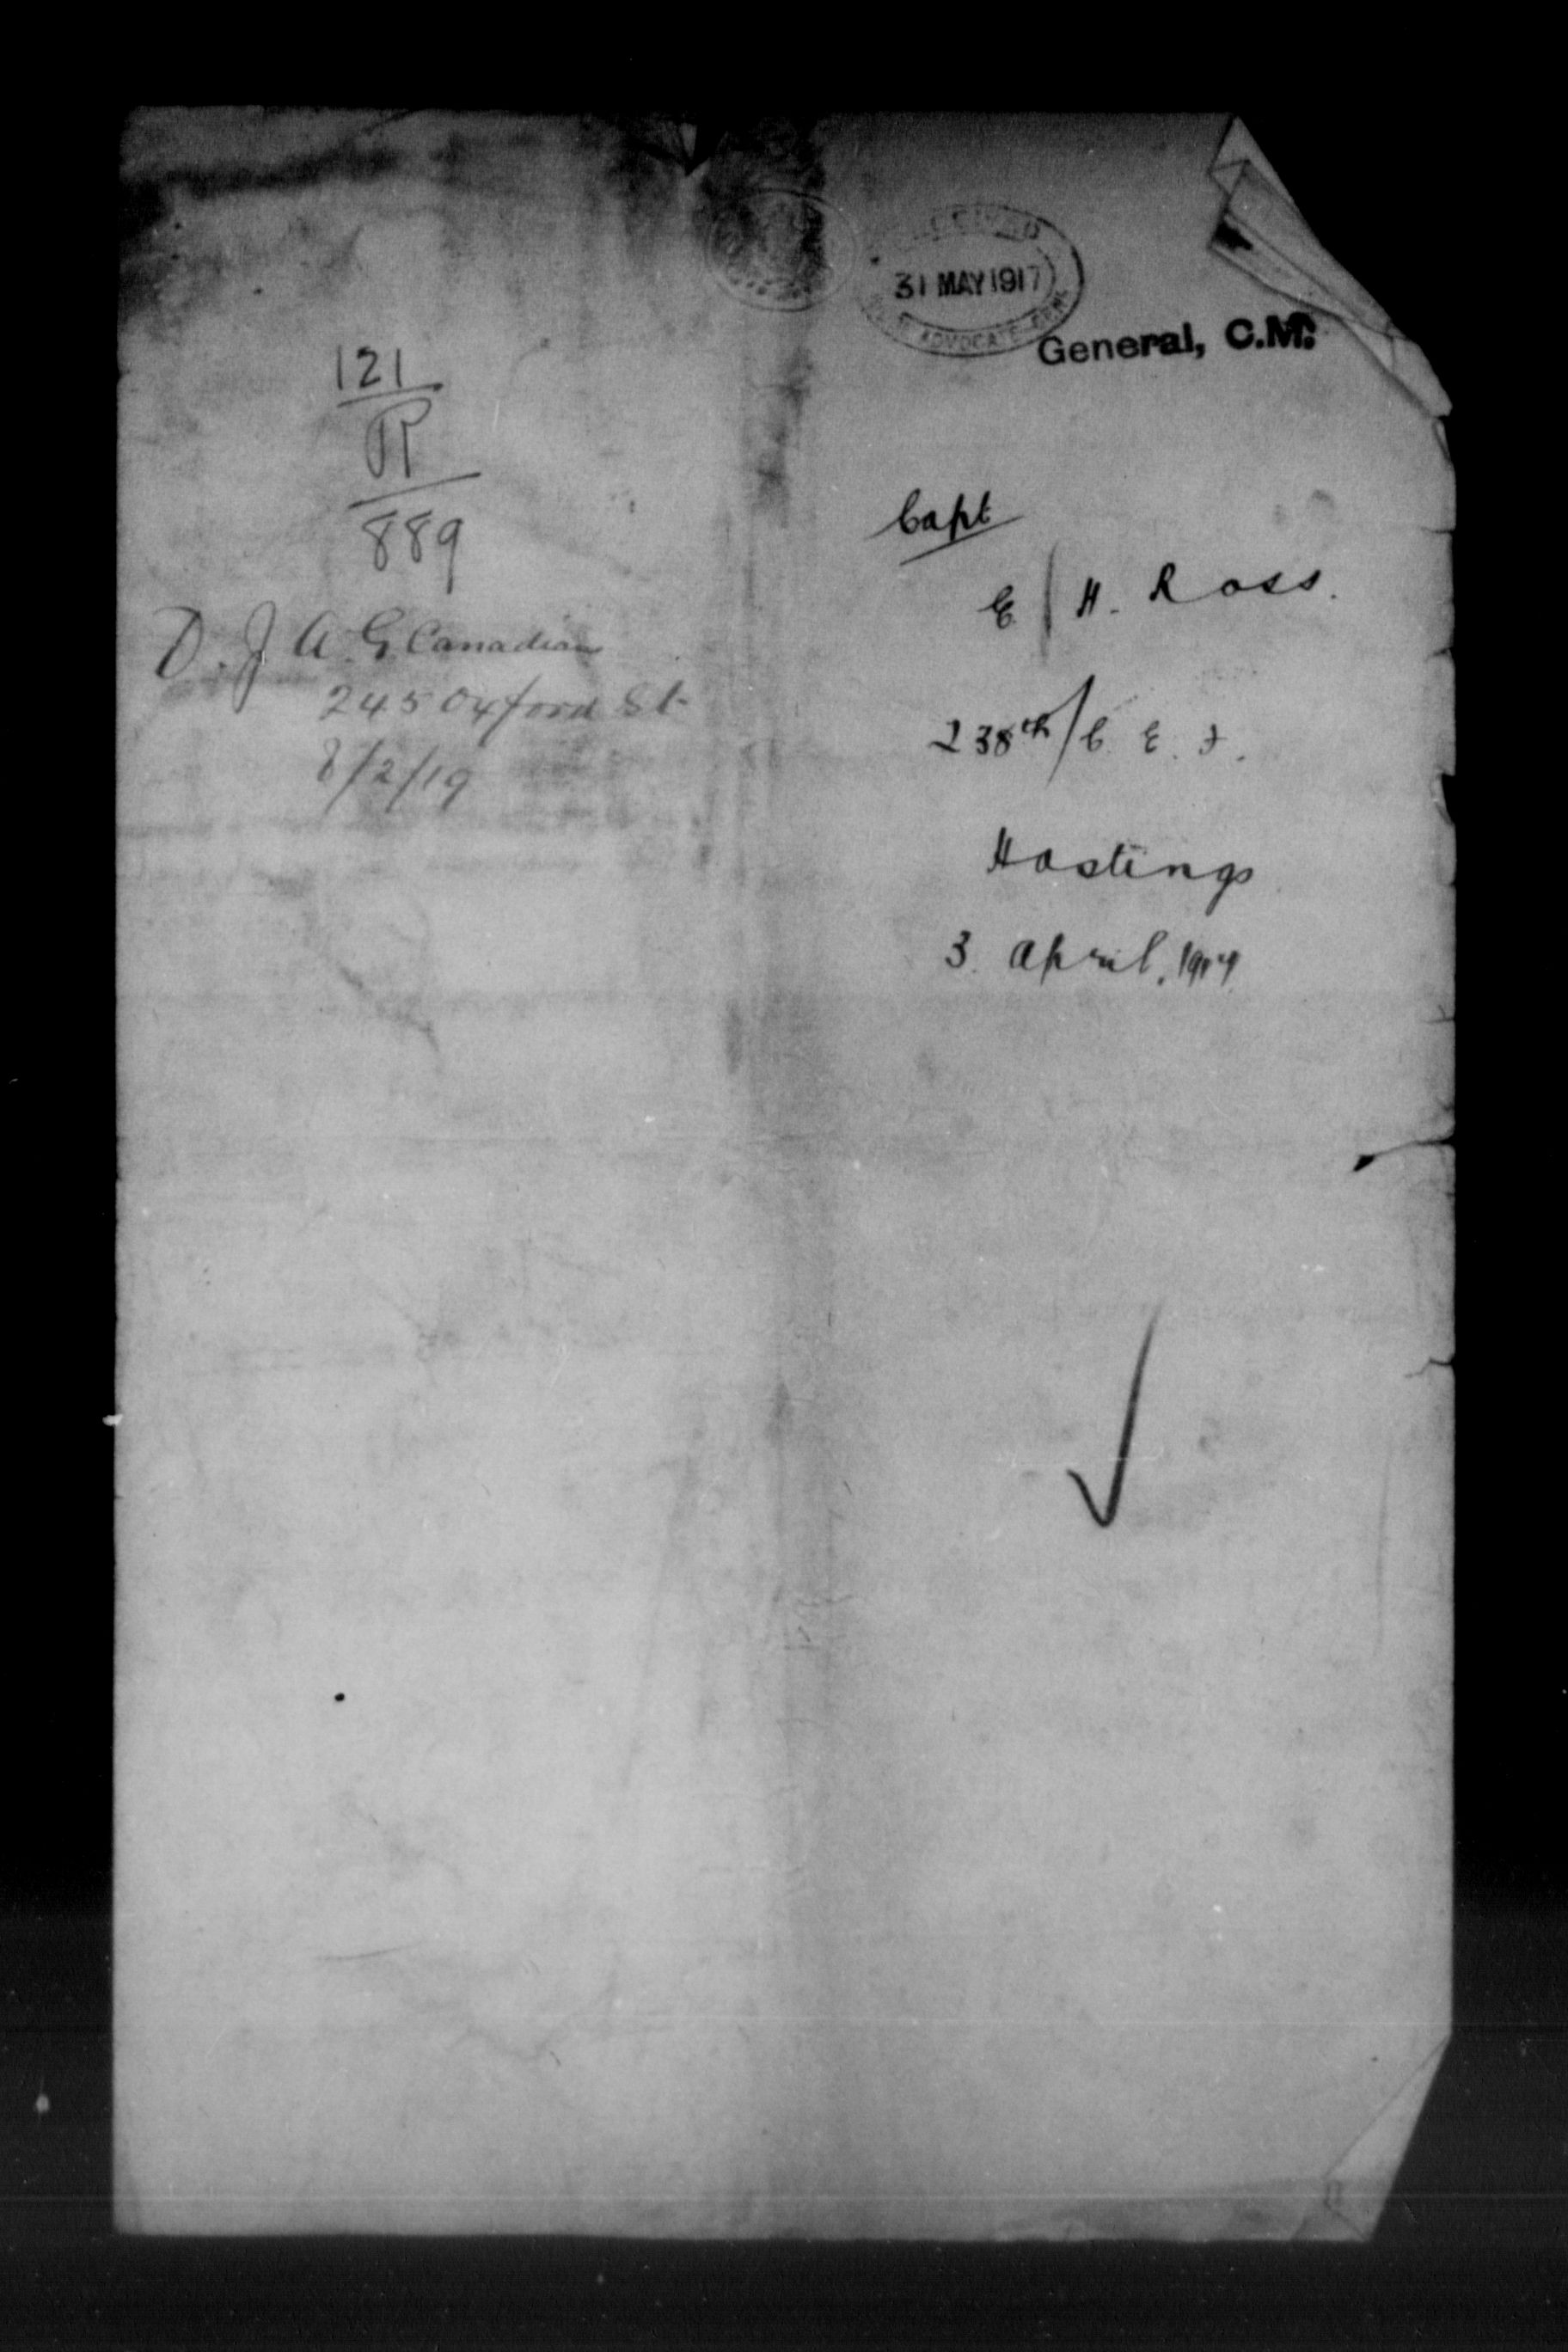 121
R
889
D. J A. G Canadian
245 Oxford St
8/2/19
31 MAY 1917
ADVOCATE GENL
General, C.M.
Capt
E / H. Ross.
238th / C. E. F.
Hastings
3. April, 1917